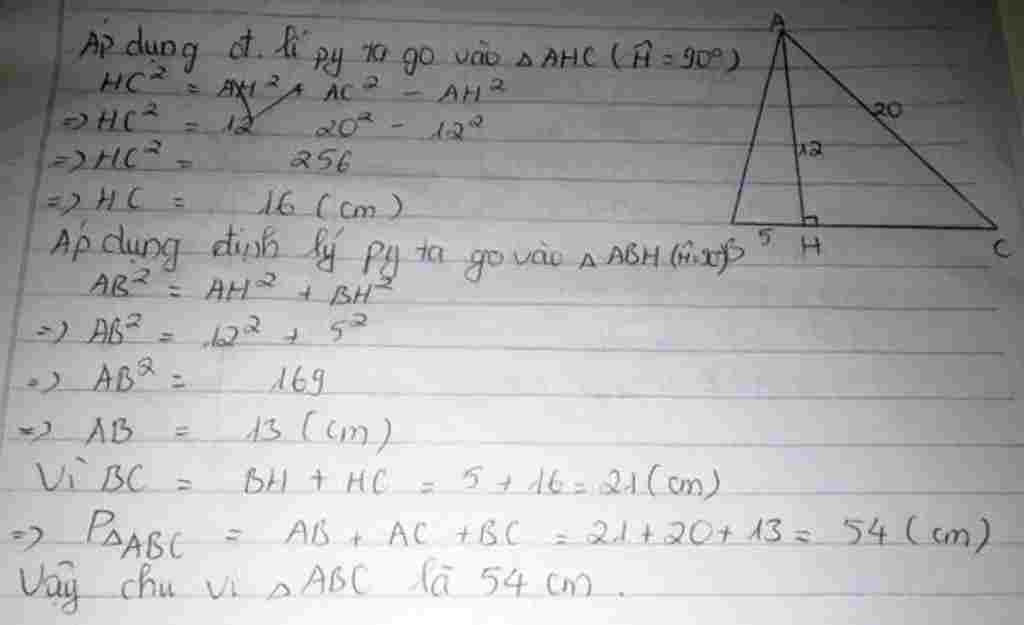 Áp dụng đ. lí py ta go vào △ AHC (Ĥ = 90°)
HC² = AH² + AC² - AH²
=> HC² = 12 20² - 12²
=> HC² = 256
=> HC = 16 (cm)
Áp dụng định lý py ta go vào △ ABH
AB² = AH² + BH²
=> AB² = 12² + 5²
=> AB² = 169
=> AB = 13 (cm)
Vì BC = BH + HC = 5 + 16 = 21 (cm)
=> P△ABC = AB + AC + BC = 21 + 20 + 13 = 54 (cm)
Vậy chu vi △ ABC là 54 cm.
A
20
12
5
H
C